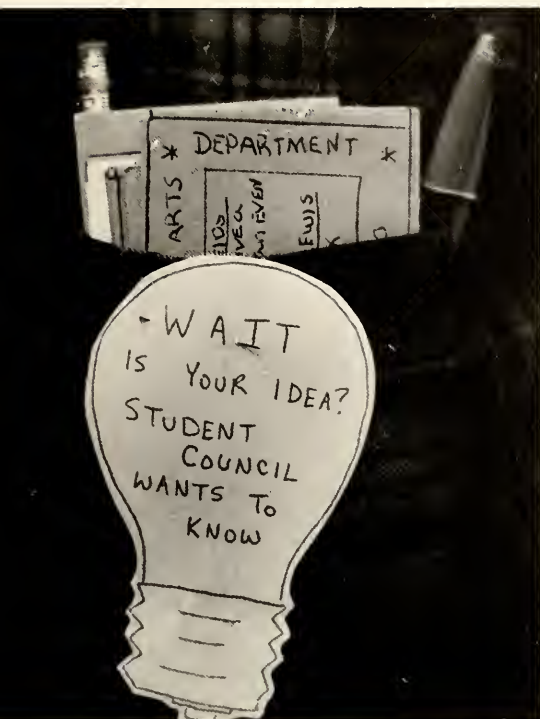 * DEPARTMENT *
ARTS
EVEN
- WAIT
IS YOUR IDEA?
STUDENT
COUNCIL
WANTS TO
KNOW